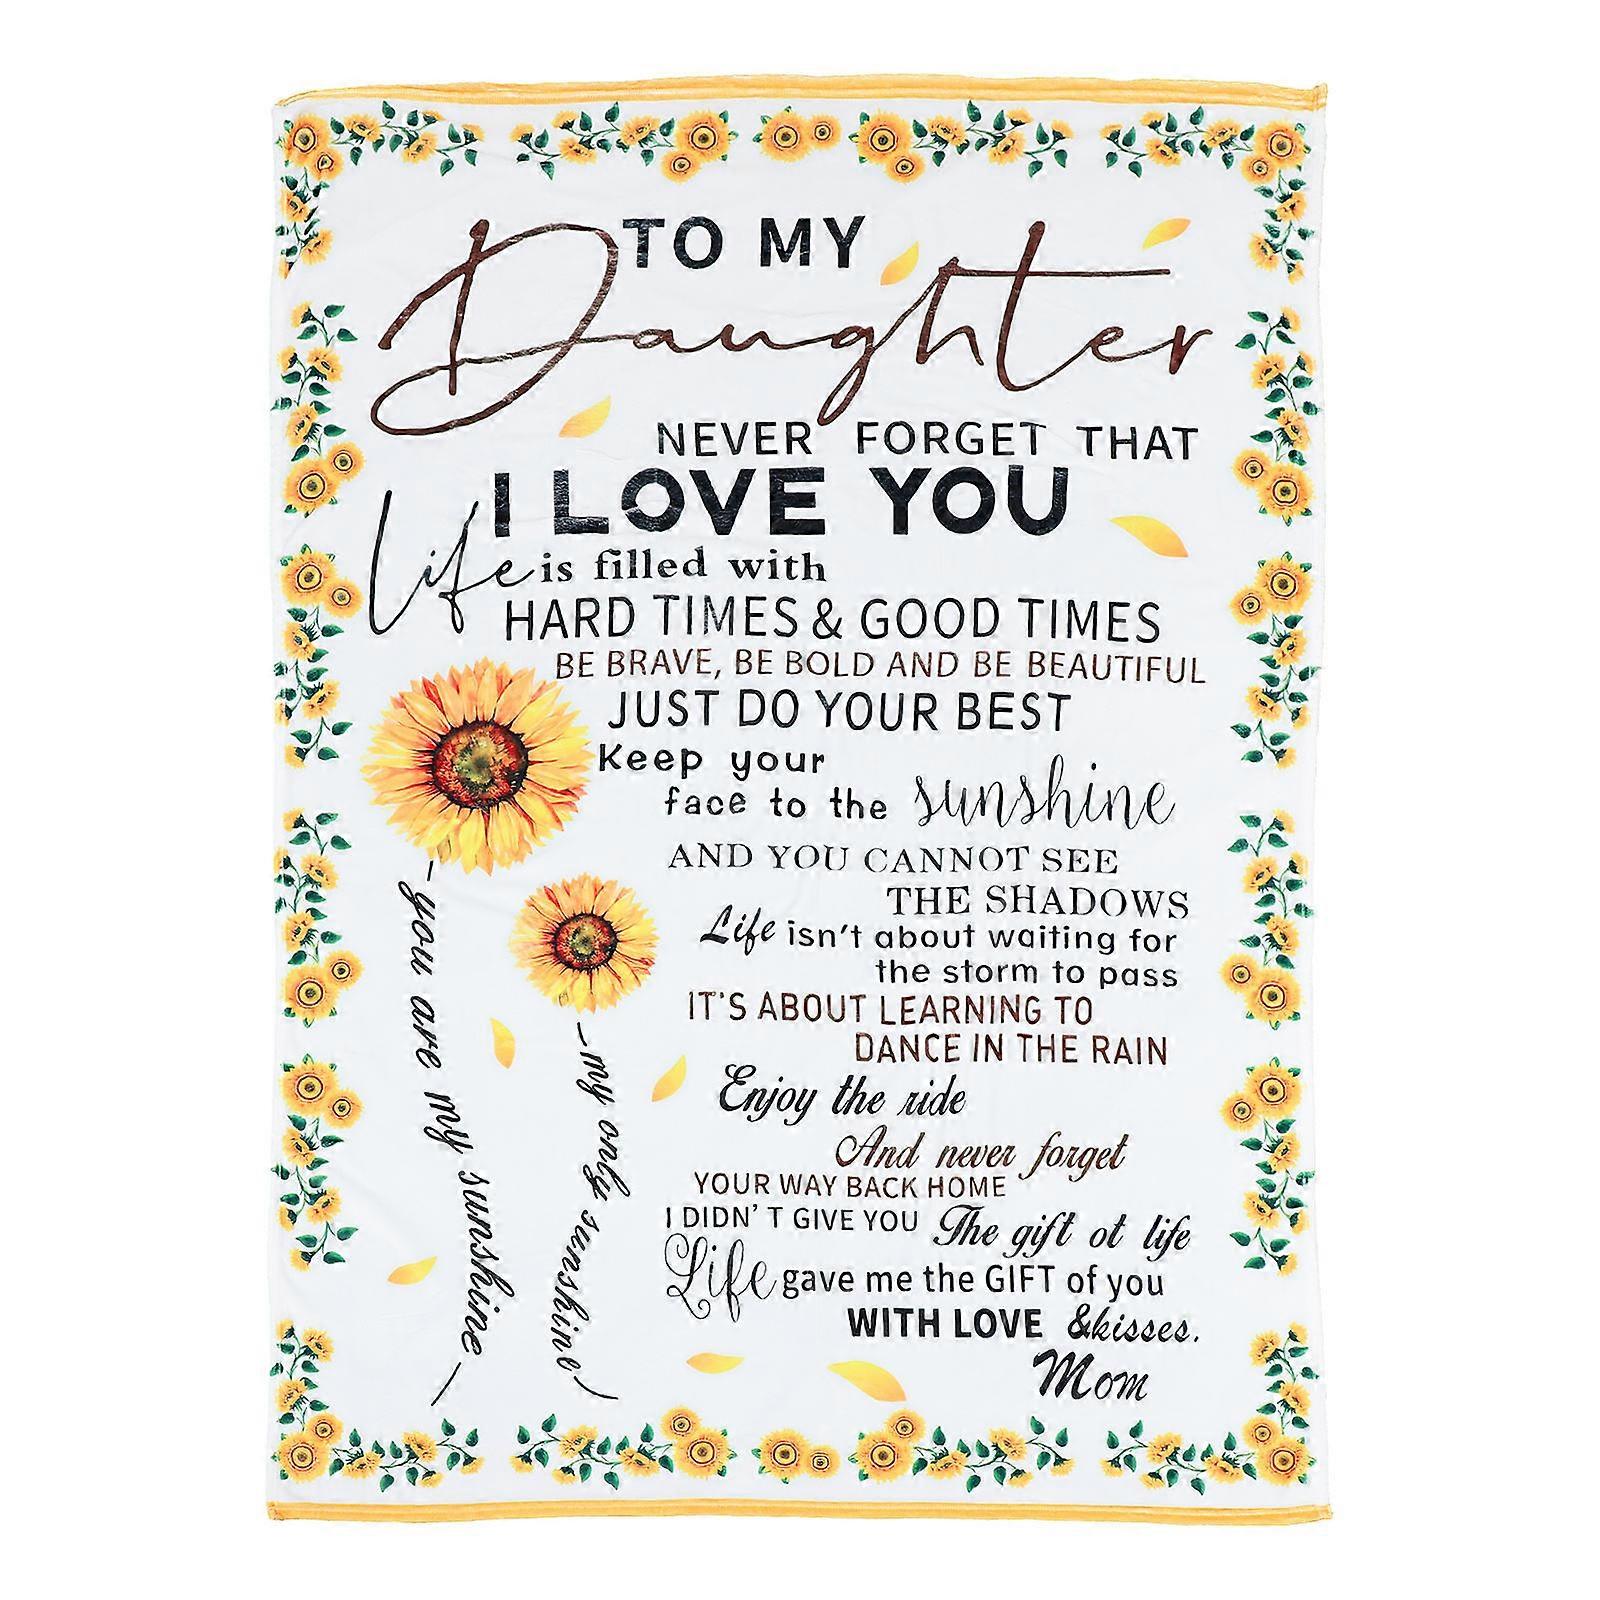 TO MY
Daughter
NEVER FORGET THAT
I LOVE YOU
Life is filled with
HARD TIMES & GOOD TIMES
BE BRAVE, BE BOLD AND BE BEAUTIFUL
JUST DO YOUR BEST
Keep your
face to the sunshine
AND YOU CANNOT SEE
THE SHADOWS
Life isn't about waiting for
the storm to pass
IT'S ABOUT LEARNING TO
DANCE IN THE RAIN
Enjoy the ride
And never forget
YOUR WAY BACK HOME
I DIDN'T GIVE YOU The gift ot life
Life gave me the GIFT of you
WITH LOVE &kisses.
Mom
-you are my sunshine-
-my only sunshine-